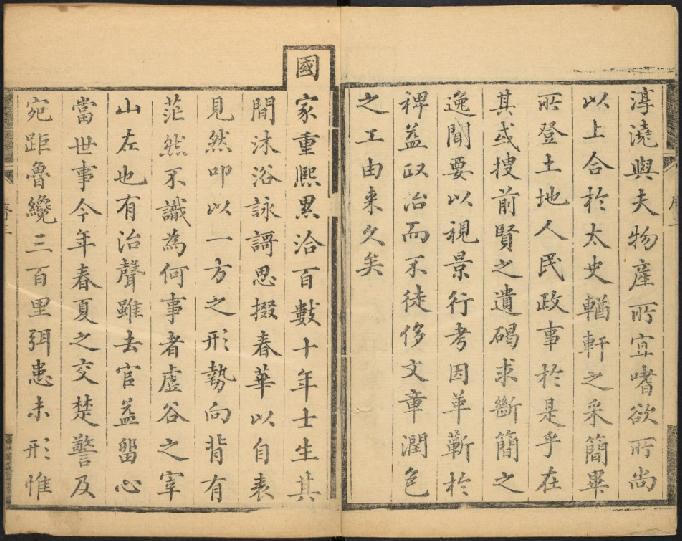 淳澆與夫物產所宜嗜欲所尚
以上合於太史輶軒之采簡畢
所登土地人民政事於是乎在
其或搜前賢之遺碣求斷簡之
逸聞要以視景行考因革蘄於
裨益政治而不徒侈文章潤色
之工由来久矣
國家重熙累洽百數十年士生其
間沐浴詠謌思掇春華以自表
見然叩以一方之形勢向背有
茫然不識為何事者虛谷之宰
山左也有治聲雖去官益留心
當世事今年春夏之交楚警及
宛距魯纔三百里弭患未形惟